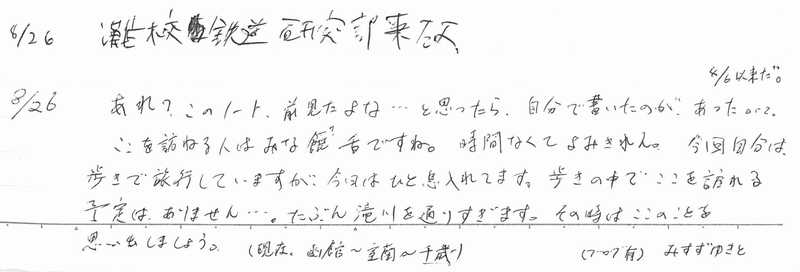 8/26 灘校鉄道研究部来たよ
4/6以来だ。
8/26 あれ?このノート、前見たよな…と思ったら、自分で書いたのが、あった
ここを訪ねる人はみな 舌ですね。時間なくてよみきれん。今回自分は
歩きで旅行していますが、今日はひと息入れてます。歩きの中でここを訪れる
予定は、ありません…。たぶん滝川を通りすぎます。その時はここのことを
思い出しましょう。(現在、函館~室蘭~千歳) (ブログ有) みすずゆきと